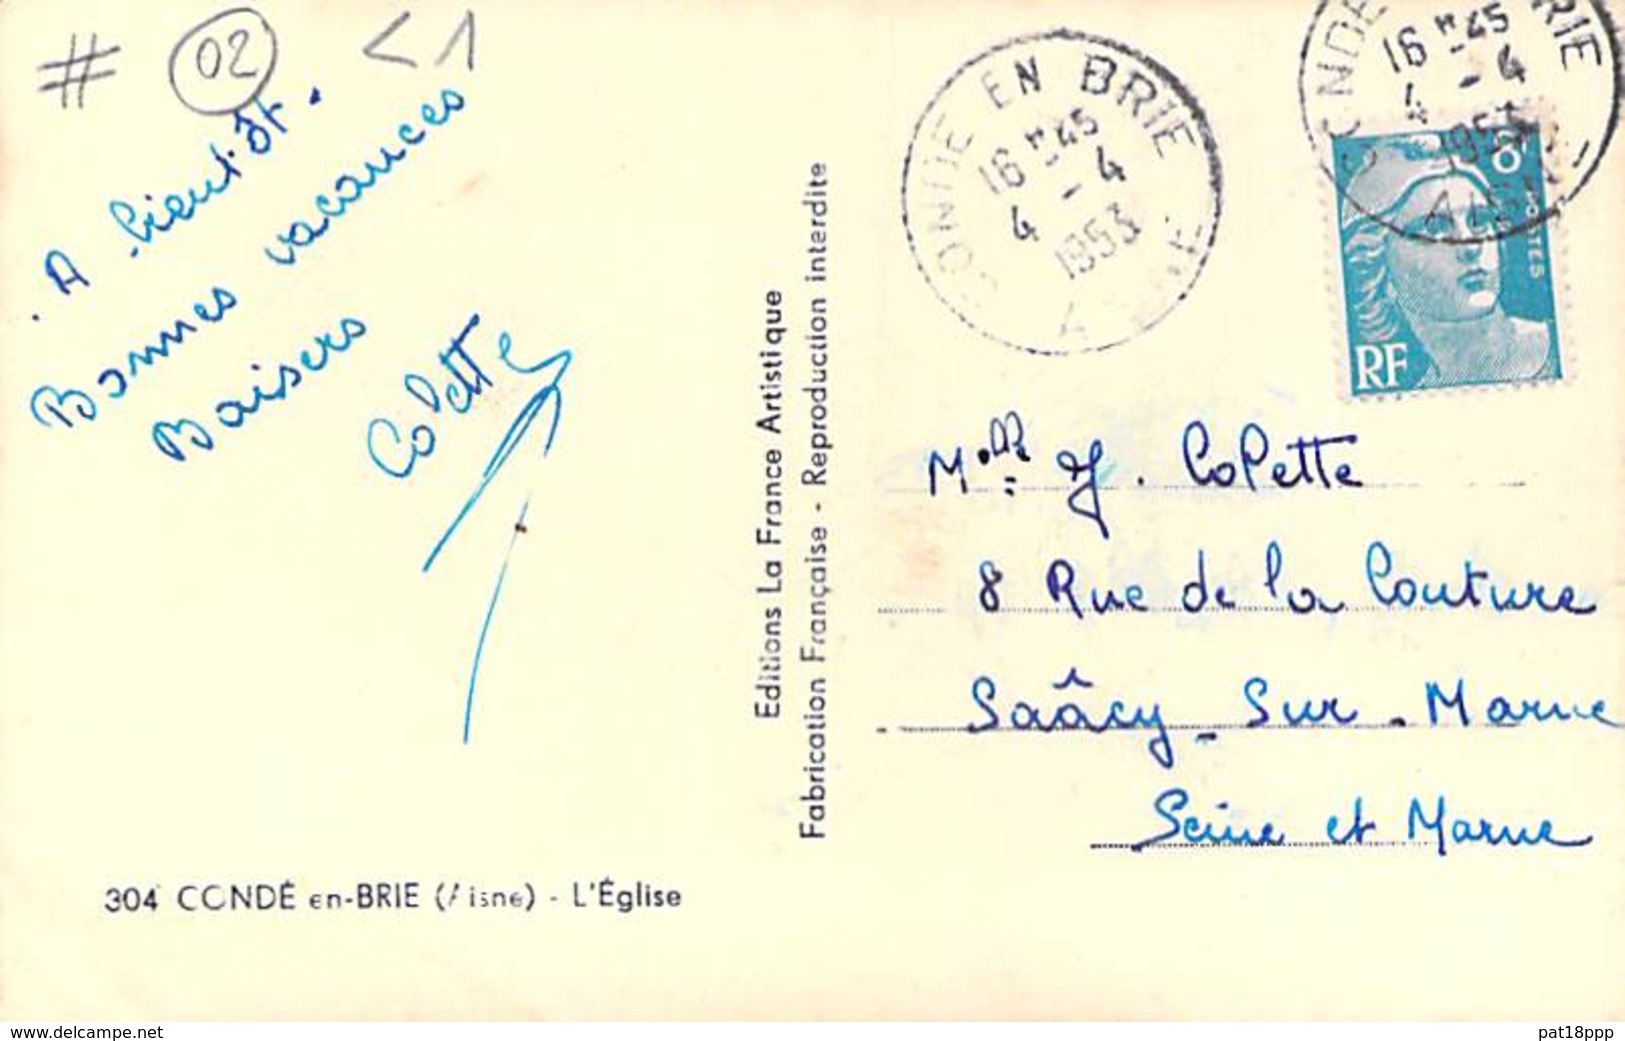 # 02 < 1
A bientôt.
Bonnes vacances
Baisers
Colette
304 CONDÉ en-BRIE (Aisne) - L'Église
Editions La France Artistique
Fabrication Française - Reproduction interdite
CONDE EN BRIE
16 H 45
4 - 4
1953
AISNE
CONDE BRIE
16 H 45
4 - 4
1953
AISNE
8F
POSTES
RF
Melle J. Colette
8 Rue de la Couture
Saâcy - Sur - Marne
Seine et Marne
www.delcampe.net
pat18ppp